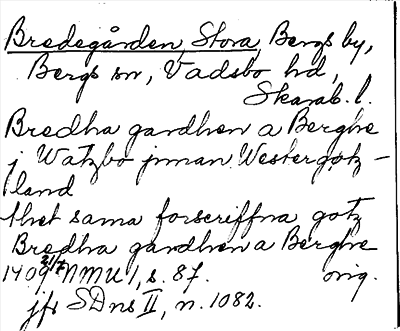 Bredegården, Stora, Bergs by,
Bergs sn, Vadsbo hd,
Skarab. l.
Bredha gardhen a Berghe
j Watzbo jnnan Westergötz-
land
thet sama forscriffna gotz
Bredha gardhen a Berghe
1409 21/7 NMU 1, s. 87. orig.
jfr SDns II, n. 1082.